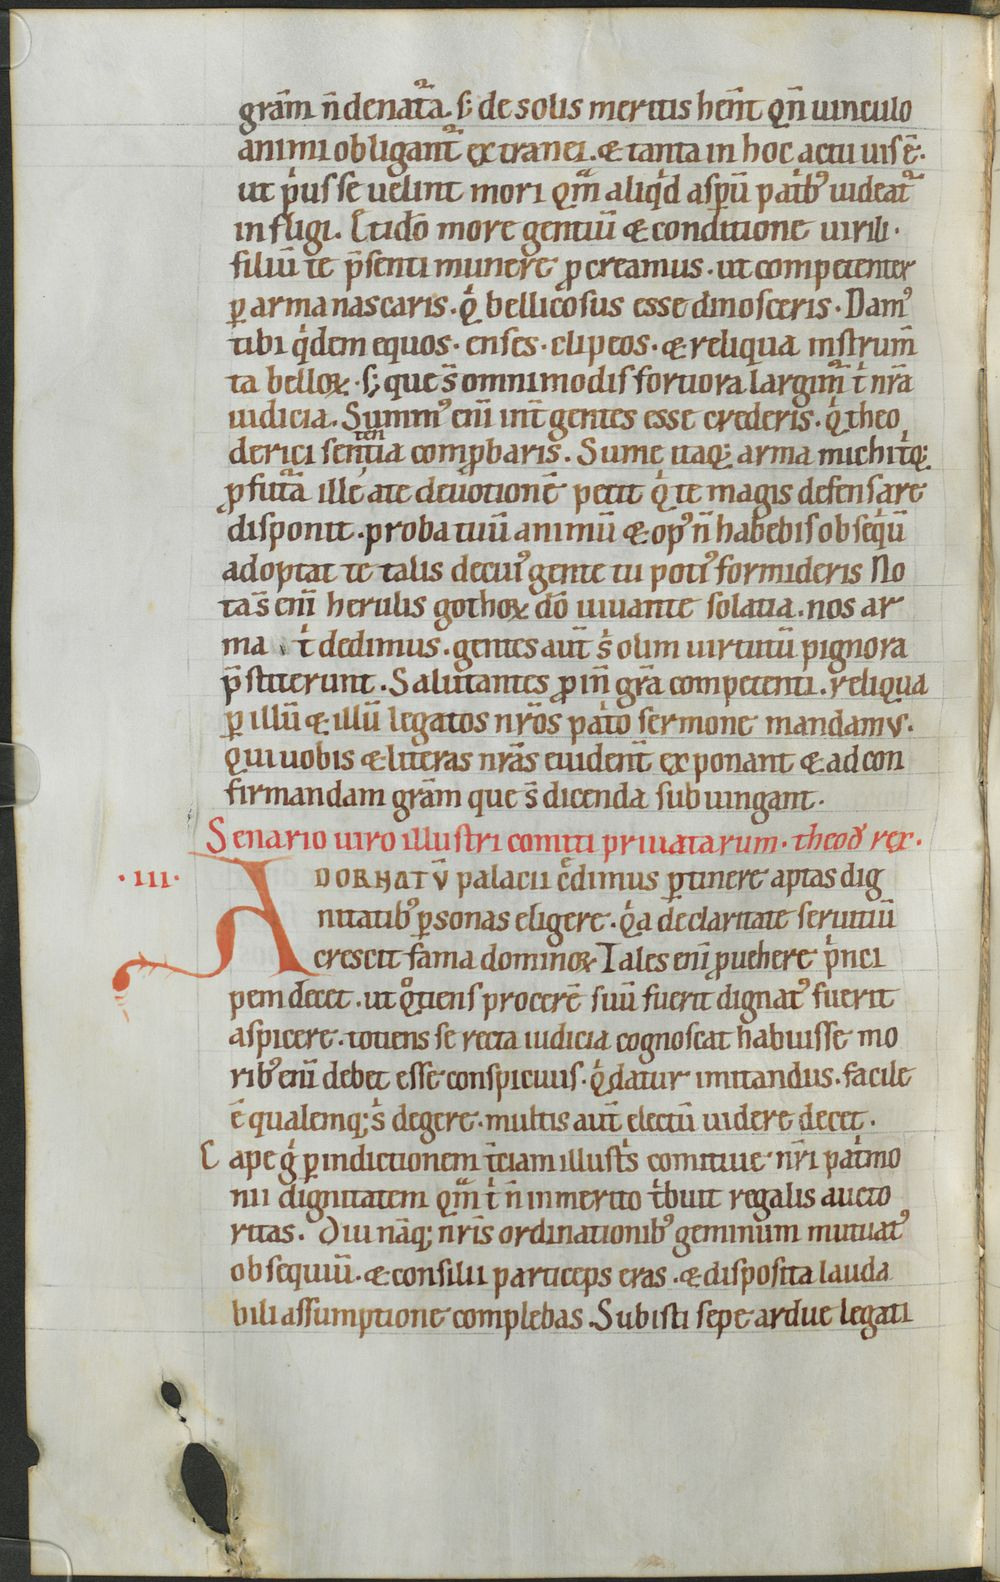 grām n̄ denat᷑a. s; de solis meritis hēnt qn̄ uinculo
animi obligant᷑ extranei. & tanta in hoc actu uis ē.
ut p̍us se uelint mori qͣm aliq̍d asꝑū pat̍bꝰ uideat᷑
infligi. Et idō more gentiū & conditione uirili.
filiū te p̄senti munere ꝓcreamus. ut competenter
ꝑ arma nascaris. q̍ bellicosus esse dinosceris. Damꝰ
tibi q̍dem equos. enses. clipeos. & reliqua instrum̄
ta belloꝝ. s; que s̄ omnimodis fortiora largim᷑ t̍ nrā
iudicia. Summꝰ enī int̄ gentes esse crederis. q̍ theo
derici sententia comꝓbaris. Sume itaq; arma michi t̍q;
ꝓfut᷑a ille a te deuotionē petit q̍ te magis defensare
disponit. proba tuū animū & opꝰ n̄ habebis obseq̍ū
adoptat te talis de cuiꝰ gente tu potiꝰ formideris No
ta s̄ enī herulis gothoꝝ dō iuuante solatia. nos ar
ma t̍ dedimus. gentes aut̄ s̍ olim uirtutū pignora
p̄stiterunt. Salutantes ꝓin̄ grā competenti. reliqua
ꝑ illū & illū legatos nrōs pat̍o sermone mandamus.
qui uobis & literas nrās euident̄ exponant & ad con
firmandam grām que s̄ dicenda subiungant.
Senario uiro illustri comiti priuatarum. theod̄ rex.
.III. ADORNATV̄ palacii c̄dimus ꝑtinere aptas dig
nitatibꝰ ꝑsonas eligere. q̍a de claritate seruitiū
crescit fama dominoꝝ Tales enī ꝓuehere p̍nci
pem decet. ut qͦtiens procerē suū fuerit dignatꝰ fuerit
aspicere. totiens se recta iudicia cognoscat habuisse mo
ribꝰ enī debet esse conspicuus. q̍ datur imitandus. facile
ē qualemq; s̍ degere. multis aut̄ electū uidere decet.
Cape g̍ ꝑ indictionem t̄ciam illust̍s comitiue nr̄i pat̍mo
nii dignitatem qͣm t̍ n̄ inmerito t̍buit regalis aucto
ritas. Diu nāq; nr̄is ordinationibꝰ geminum mutuatꝰ
obsequiū. & consilii particeps eras. & disposita lauda
bili assumptione complebas. Subisti sepe ardue legati